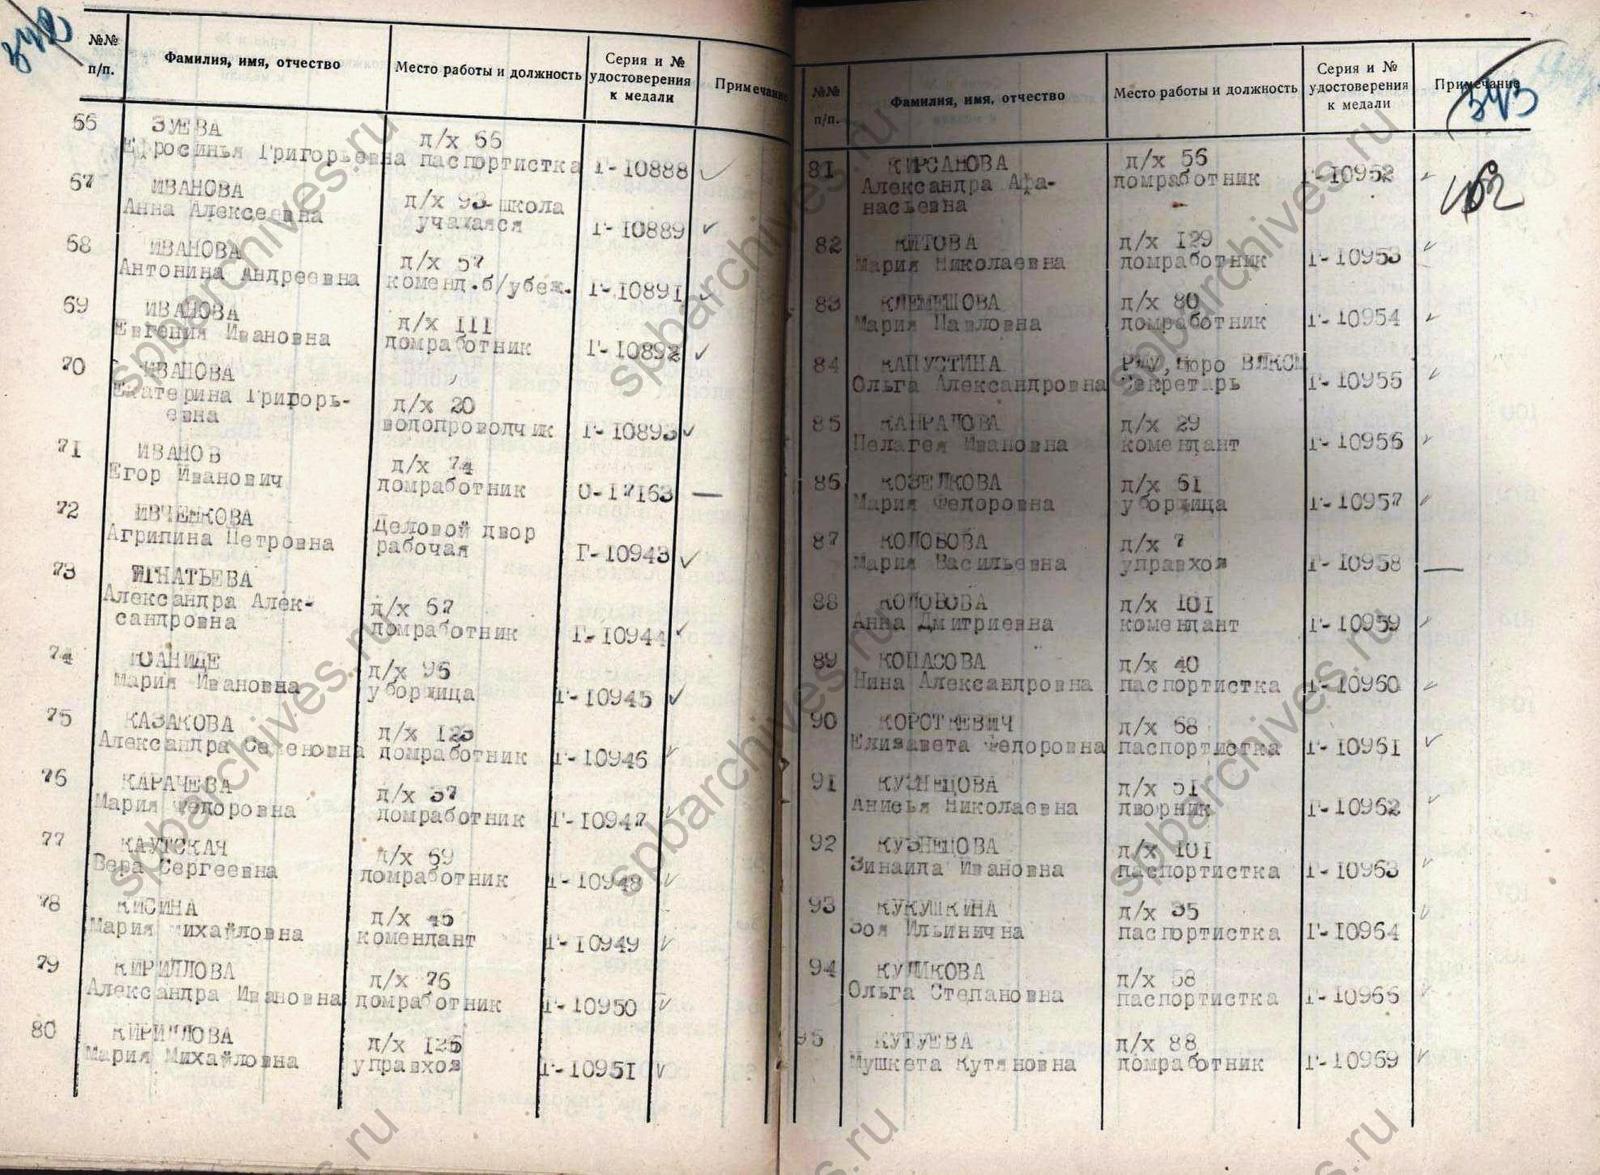 342
№№
п/п.
Фамилия, имя, отчество
Место работы и должность
Серия и №
удостоверения
к медали
Примечание
66 ЗУЕВА д/х 66
Ефросинья Григорьевна паспортистка Г-10888
67 ИВАНОВА д/х 93 школа
Анна Алексеевна учащаяся Г-10889
68 ИВАНОВА д/х 57
Антонина Андреевна коменд.б/убеж. Г-10891
69 ИВАНОВА д/х 111
Евгения Ивановна домработник Г-10892
70 ИВАНОВА
Екатерина Григорь- д/х 20
евна водопроводчик Г-10893
71 ИВАНОВ д/х 74
Егор Иванович домработник О-17163 —
72 ИВЧЕНКОВА Деловой двор
Агрипина Петровна рабочая Г-10943
73 ИГНАТЬЕВА
Александра Алек- д/х 67
сандровна домработник Г-10944
74 ИОАНИДЕ д/х 96
Мария Ивановна уборщица Г-10945
75 КАЗАКОВА д/х 123
Александра Семеновна домработник Г-10946
76 КАРАЧЕВА д/х 37
Мария Федоровна домработник Г-10947
77 КАУТСКАЧ д/х 69
Вера Сергеевна домработник Г-10948
78 КИСИНА д/х 45
Мария Михайловна комендант Г-10949
79 КИРИЛЛОВА д/х 76
Александра Ивановна домработник Г-10950
80 КИРИЛЛОВА д/х 126
Мария Михайловна управхоз Г-10951
343
162
№№
п/п.
Фамилия, имя, отчество
Место работы и должность
Серия и №
удостоверения
к медали
Примечание
81 КИРСАНОВА д/х 56
Александра Афа- домработник Г-10952
насьевна
82 КИТОВА д/х 129
Мария Николаевна домработник Г-10953
83 КЛЕМЕШОВА д/х 80
Мария Павловна домработник Г-10954
84 КАПУСТИНА РЖУ, бюро ВЛКСМ
Ольга Александровна Секретарь Г-10955
85 КАНРАЛОВА д/х 29
Пелагея Ивановна комендант Г-10956
86 КОЗЕЛКОВА д/х 61
Мария Федоровна уборщица Г-10957
87 КОЛОБОВА д/х 7
Мария Васильевна управхоз Г-10958 —
88 КОЛОБОВА д/х 101
Анна Дмитриевна комендант Г-10959
89 КОПАСОВА д/х 40
Нина Александровна паспортистка Г-10960
90 КОРОТКЕВИЧ д/х 68
Елизавета Федоровна паспортистка Г-10961
91 КУЗНЕЦОВА д/х 51
Анисья Николаевна дворник Г-10962
92 КУЗНЕЦОВА д/х 101
Зинаида Ивановна паспортистка Г-10963
93 КУКУШКИНА д/х 35
Зоя Ильинична паспортистка Г-10964
94 КУЛИКОВА д/х 58
Ольга Степановна паспортистка Г-10966
95 КУТУЕВА д/х 88
Мушкета Кутяновна домработник Г-10969
spbarchives.ru